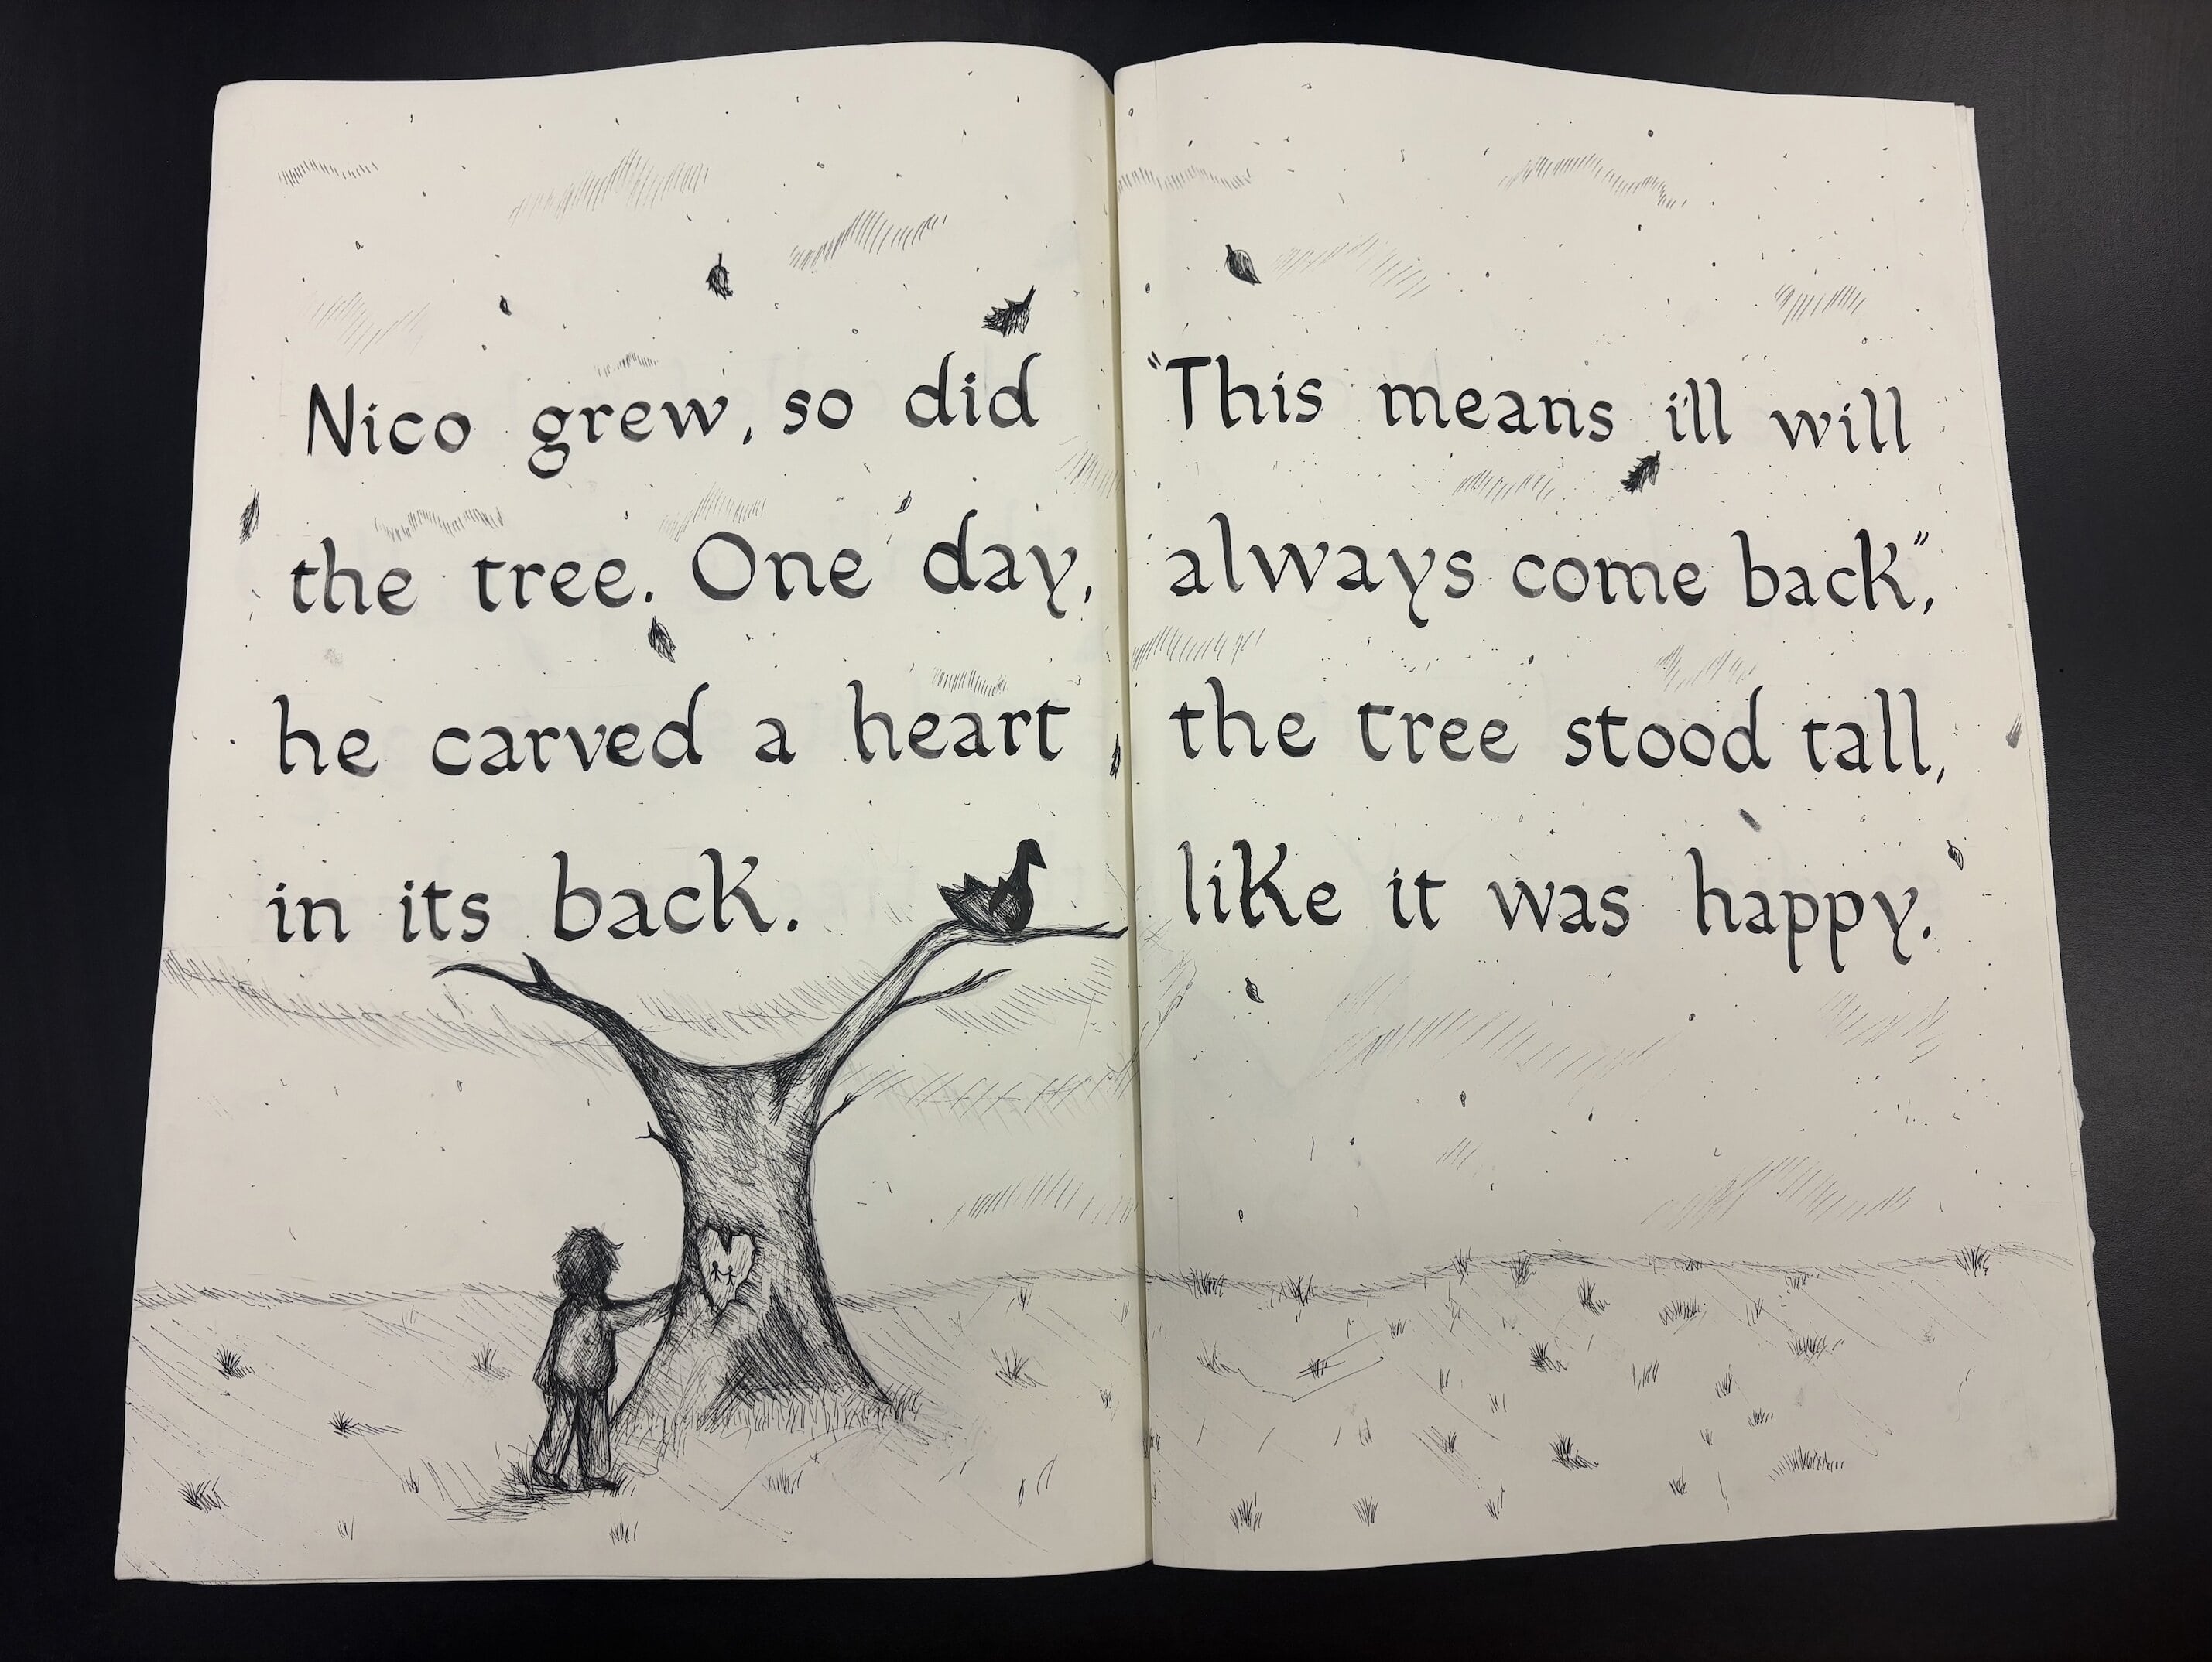 Nico grew, so did
the tree. One day,
he carved a heart
in its back.
"This means i'll will
always come back",
the tree stood tall,
like it was happy.